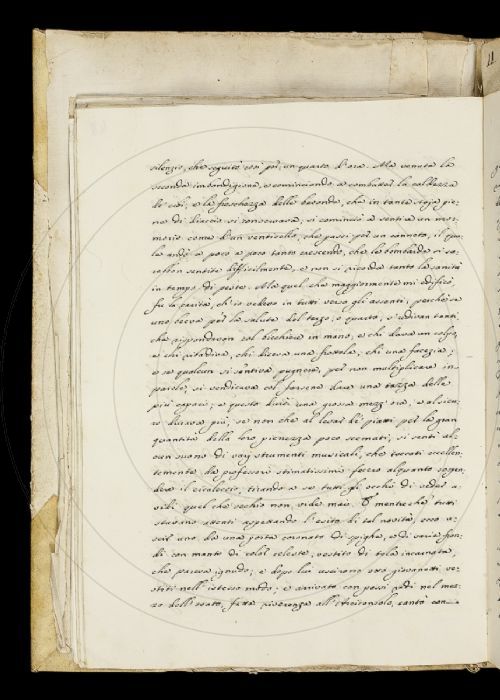 silenzio, che seguitò così per un quarto d'ora. Ma venuta la
seconda imbandigione, e cominciando a combatter la caldezza
de' cibi, e la freschezza delle bevande, che in tanto ripie-
no di diaccio si conservava, si cominciò a sentire un mor-
morio come d'un venticello, che passi per un canneto, il qua-
le andò a poco a poco tanto crescendo, che le bombarde si sa-
rebbon sentite difficilmente, e non si ricorda tanto la sanità
in tempo di peste. Ma quel che maggiormente mi edificò,
fu la carità, ch'io vedevo in tutti verso gli assenti, perché se
uno beeva per la salute del terzo, e quarto, s'udivan tanti
che rispondevon col bicchiere in mano, e chi dava un colpo,
e chi cittadina, chi diceva una frottola, chi una facezia;
e se qualcun si sentiva pugnere, per non multiplicare in
parole, si vendicava col farsene dare una tazza delle
più capaci; e questo durò una grossa mezz'ora, e al sicu-
ro durava più, se non che al levar de' piatti per la gran
quantità della loro pienezza poco scemati, si sentì al-
cun suono di varj strumenti musicali, che toccati eccellen-
temente da professori stimatissimi fecero alquanto sospen-
dere il cicaleccio, tirando a se tutti gli occhi di veder a
vidi quel che occhio non vide mai. E mentre che tutti
stavano attenti aspettando l'esito di tal novità, ecco u-
scir uno da una porta coronato di spighe, e di varie fron-
di con manto di color celeste, vestito di tela incarnata,
che pareva ignudo; e dopo lui uscirono sei giovanetti ve-
stiti nell'istesso modo; e arrivato con passi gravi nel mez-
zo dell'orato, fatta riverenza all'Arciconsolo, cantò con